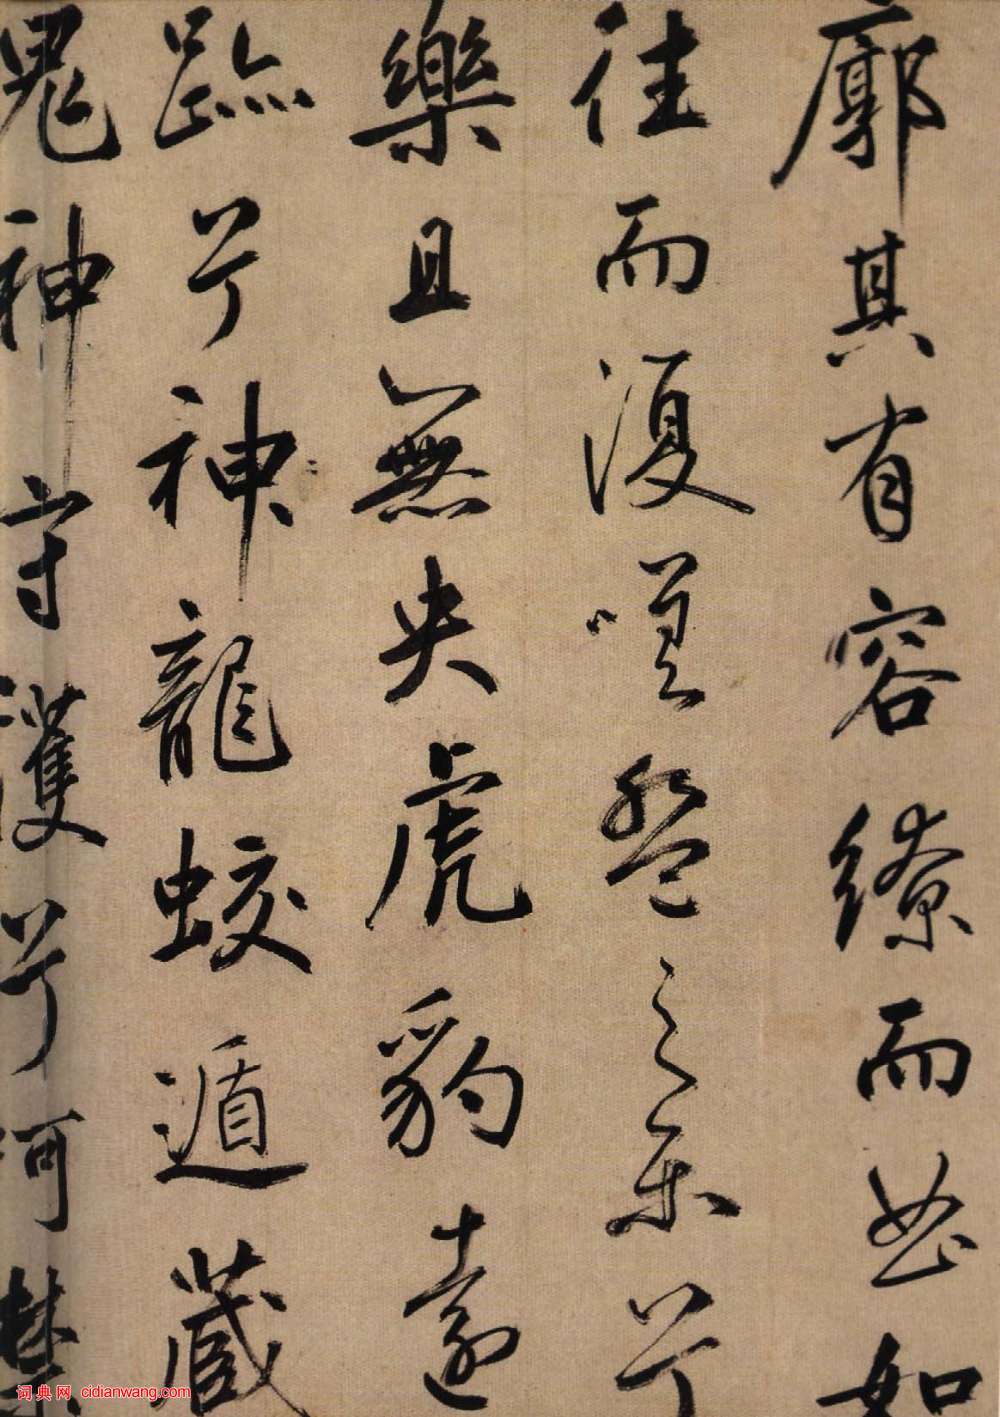 廓其有容繚而曲如
往而復嗟盤之樂兮
樂且無央虎豹遠
跡兮神龍蛟遁藏
鬼神守護兮呵禁
词典网 cidianwang.com